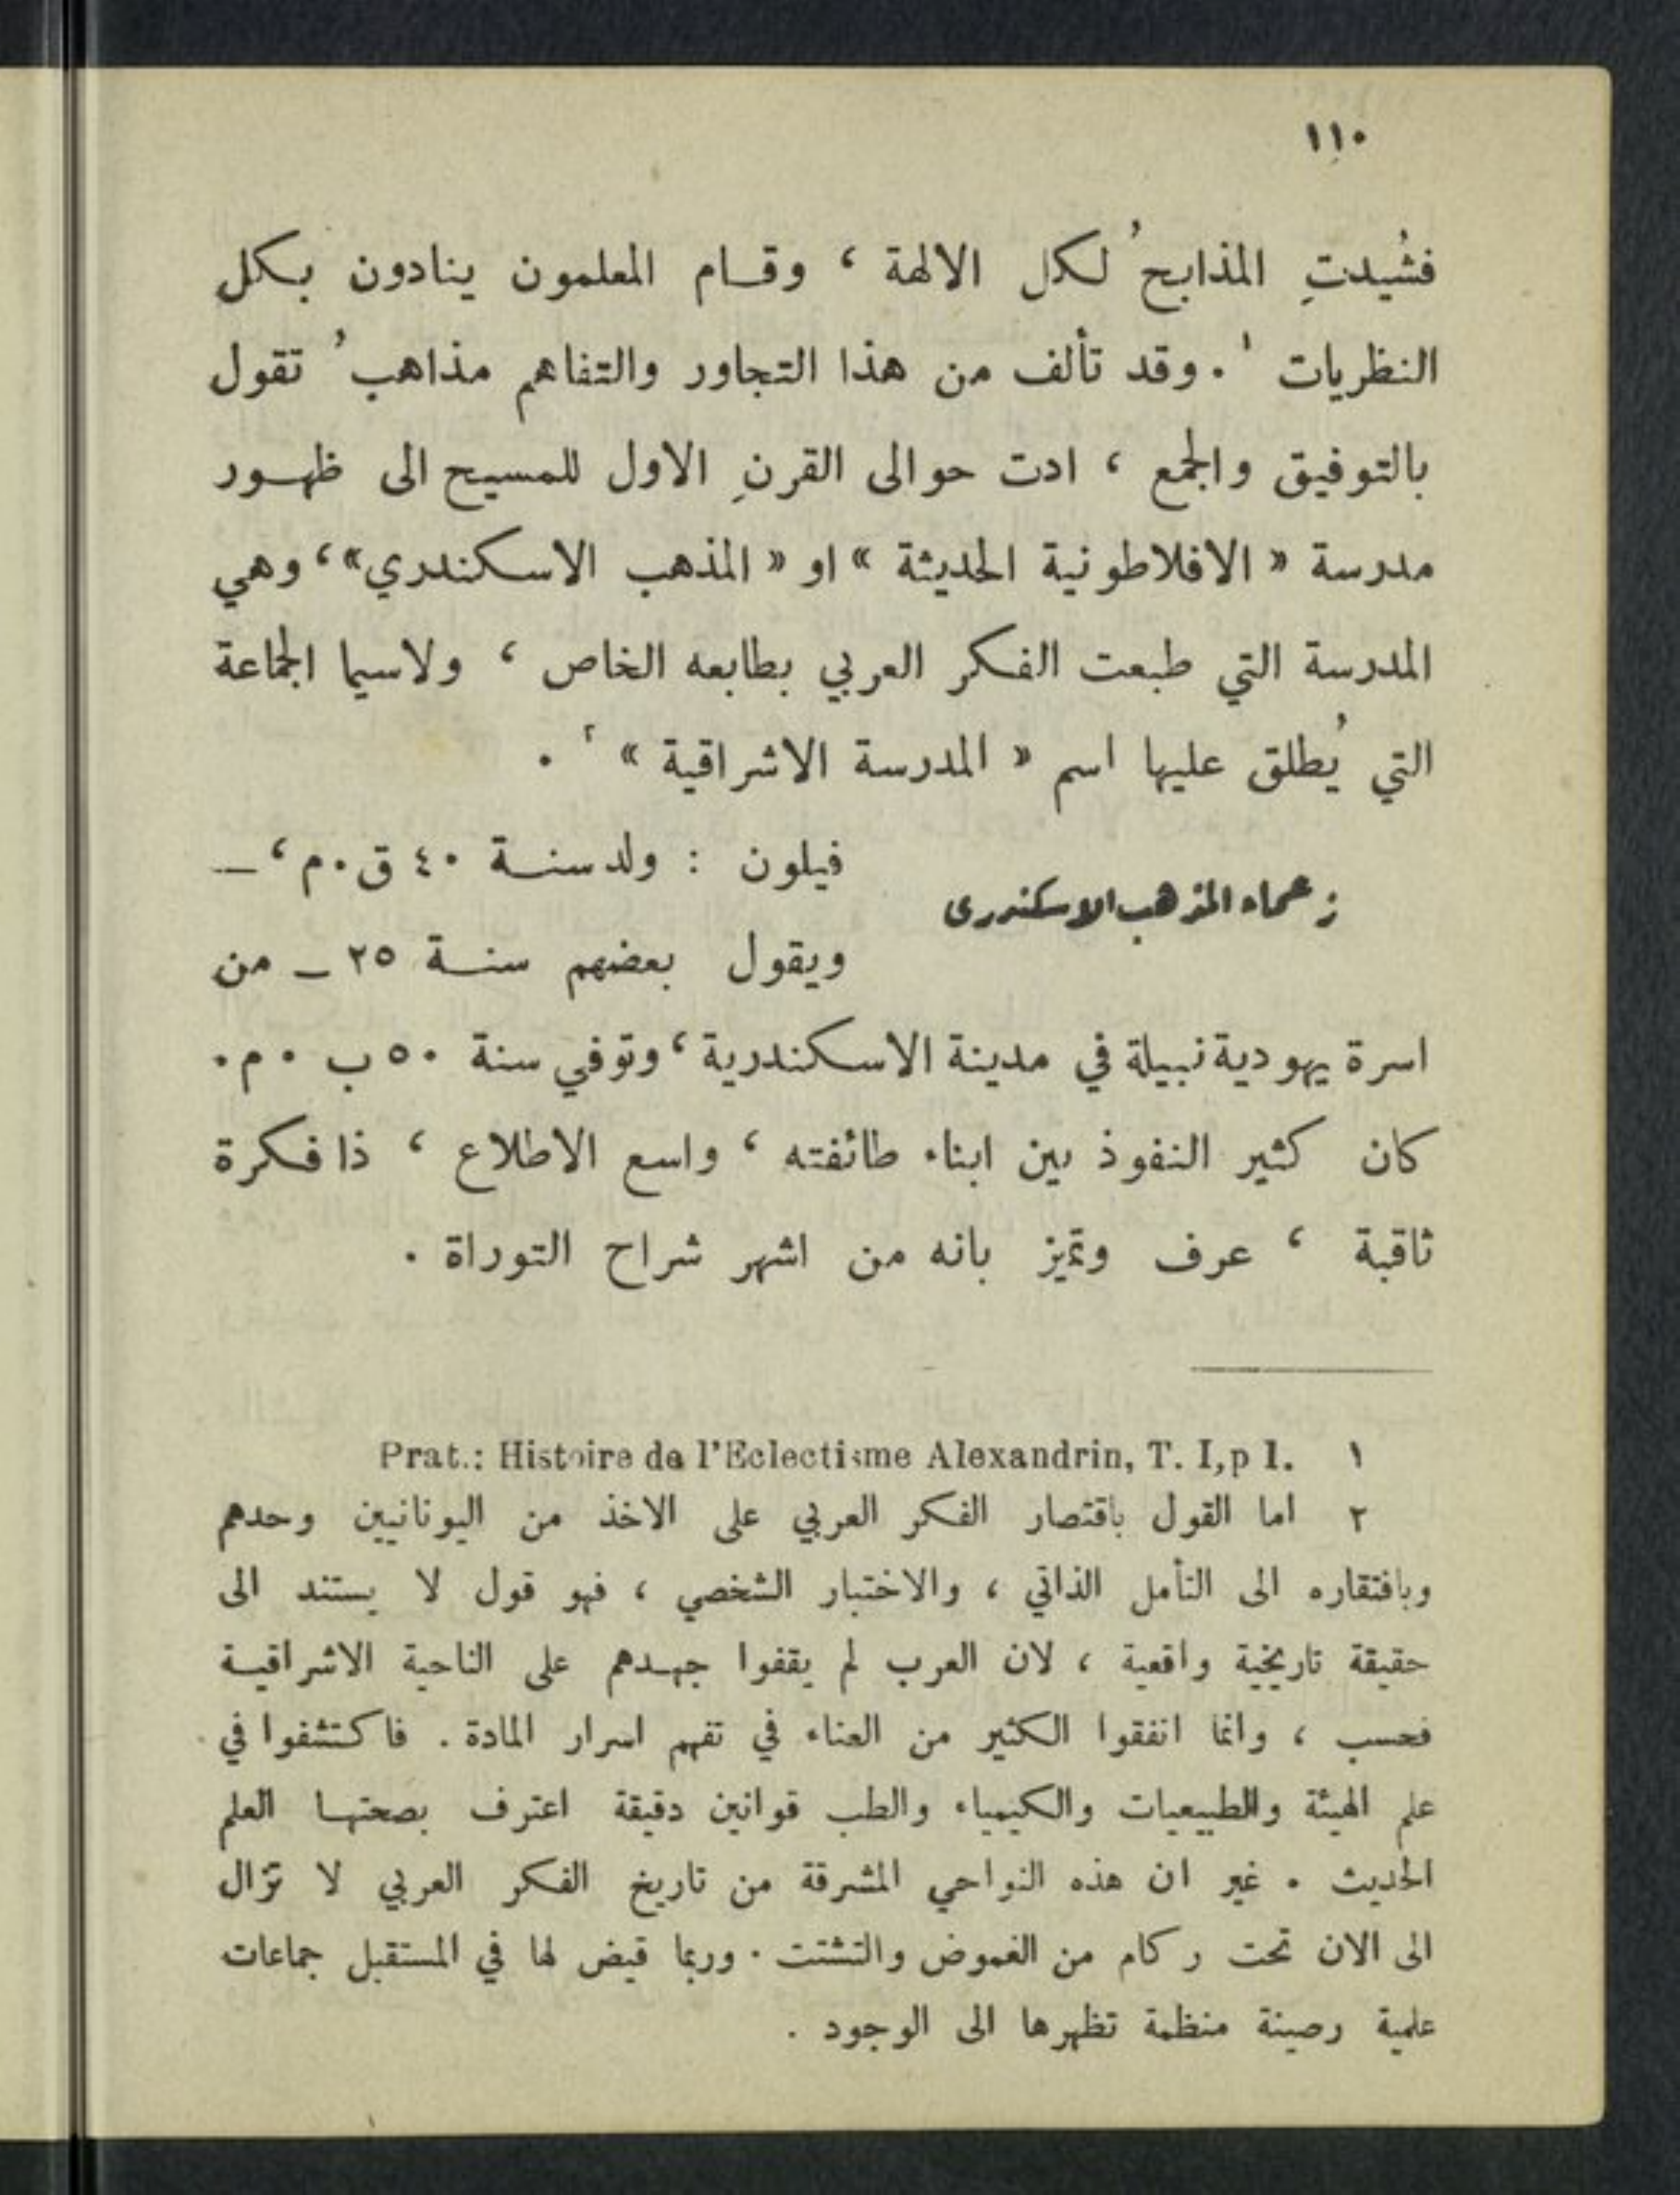 ١١٠
فشُيدتِ المذابحُ لكل الالهة ، وقـام المعلمون ينادون بكل
النظريات ١ . وقد تألف من هذا التجاور والتفاهم مذاهبُ تقول
بالتوفيق والجمع ، ادت حوالى القرنِ الاول للمسيح الى ظهـور
مدرسة « الافلاطونية الحديثة » او « المذهب الاسكندري» ، وهي
المدرسة التي طبعت الفكر العربي بطابعه الخاص ، ولاسيما الجماعة
التي يُطلق عليها اسم « المدرسة الاشراقية » ٢ .
زعماء المذهب الاسكندرى
فيلون : ولد سنـة ٤٠ ق.م ، —
ويقول بعضهم سنـة ٢٥ — من
اسرة يهودية نبيلة في مدينة الاسكندرية ، وتوفي سنة ٥٠ ب . م .
كان كثير النفوذ بين ابناء طائفته ، واسع الاطلاع ، ذا فكرة
ثاقبة ، عرف وتميز بانه من اشهر شراح التوراة .
١ Prat.: Histoire de l'Eclectisme Alexandrin, T. I,p 1.
٢ اما القول باقتصار الفكر العربي على الاخذ من اليونانيين وحدهم
وبافتقاره الى التأمل الذاتي ، والاختبار الشخصي ، فهو قول لا يستند الى
حقيقة تاريخية واقعية ، لان العرب لم يقفوا جهـدهم على الناحية الاشراقيـة
فحسب ، وانما انفقوا الكثير من العناء في تفهم اسرار المادة . فاكتشفوا في
علم الهيئة والطبيعيات والكيمياء والطب قوانين دقيقة اعترف بصحتهـا العلم
الحديث . غير ان هذه النواحي المشرقة من تاريخ الفكر العربي لا تزال
الى الان تحت ركام من الغموض والتشتت . وربما قيض لها في المستقبل جماعات
علمية رصينة منظمة تظهرها الى الوجود .